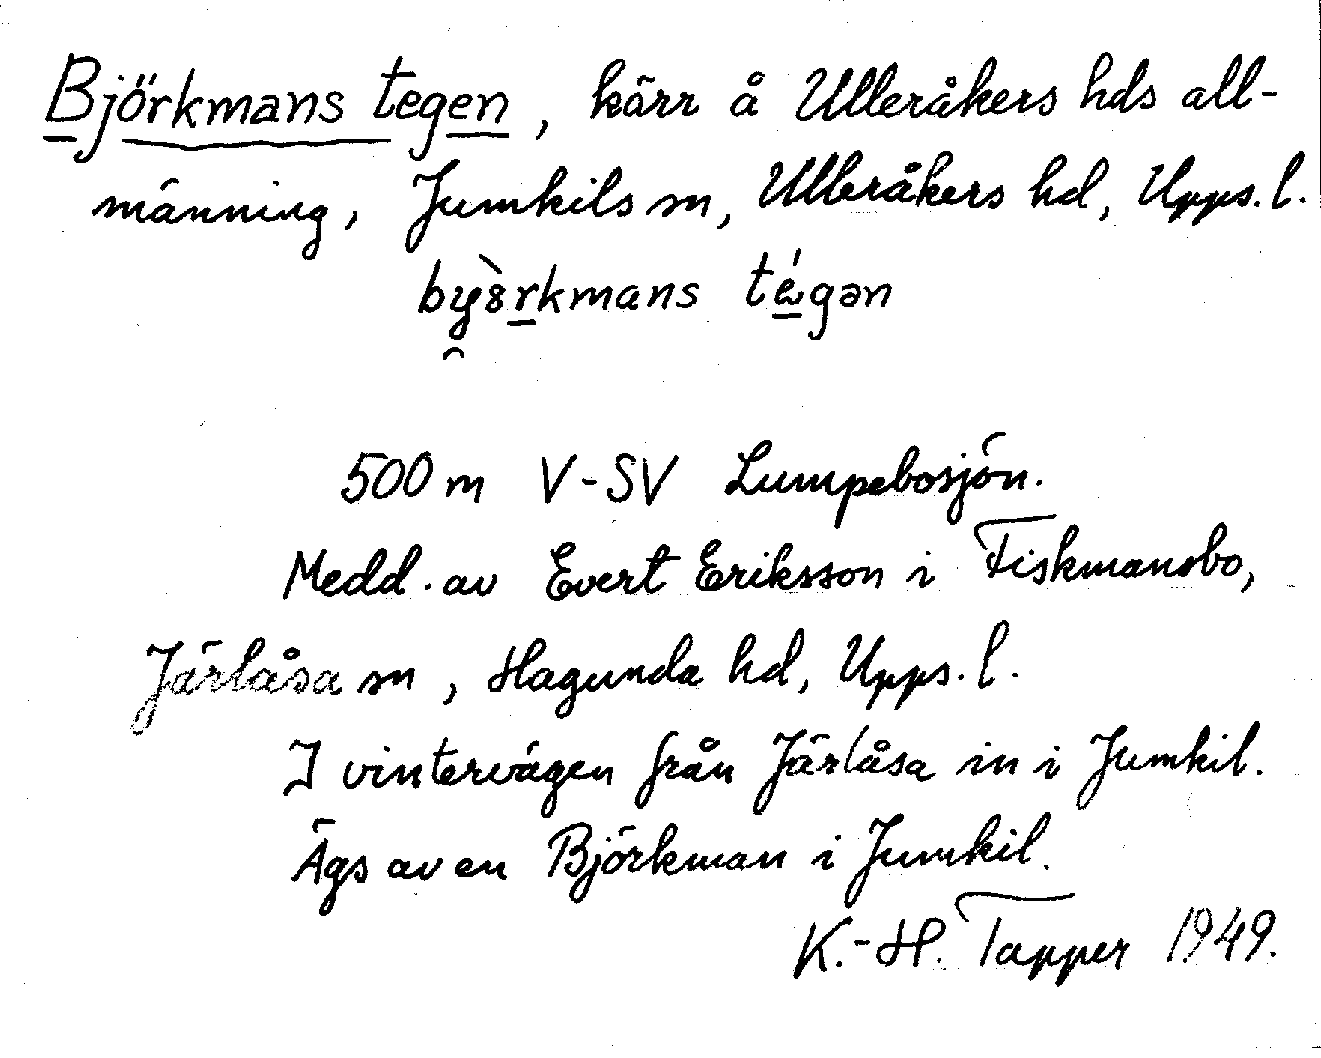 Björkmans tegen, kärr å Ulleråkers hds all-
männing, Jumkils sn, Ulleråkers hd, Upps. l.
tégən
500 m V-SV Lumpebosjön.
Medd. av Evert Eriksson i Fiskmansbo,
Järlåsa sn, Hagunda hd, Upps. l.
I vintervägen från Järlåsa in i Jumkil.
Ägs av en Björkman i Jumkil.
K.-H. Tapper 1949.